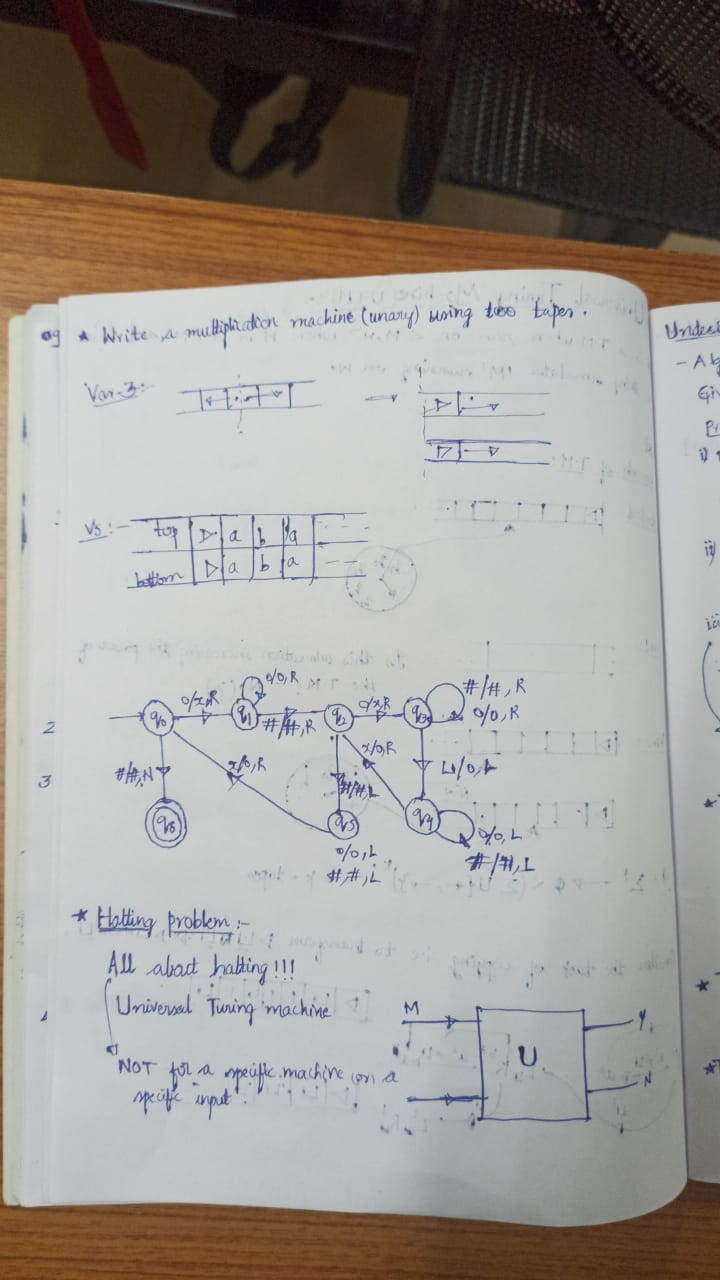 * Write a multiplication machine (unary) using two tapes.
Var-3:-
V5:-
top ▷ a b a
bottom ▷ a b a
0/x,R
0/0,R
0/x,R
#/#,R
0/0,R
q0 q1 #/#,R q2 q3
#/#,N x/0,R #/#,L x/0,R ⊔/0,L
q6 q5 q4
0/0,L
#,#,L
0/0,L
#/#,L
* Halting problem:-
All about halting!!!
Universal Turing machine
NOT for a specific machine (or) a
specific input.
M
U
Y
N
2
3
Undec
- A
Gi
i)
ii)
iii